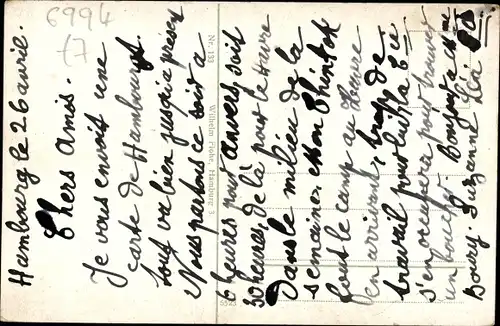 6994
17
Hambourg le 26 avril.
Chers Amis.
Je vous envoie une
carte de Hambourg.
tout va bien jusqu'a présent
Nous partons ce soir a
6 heures pour anvers soit
30 heures, de là pour le Havre
Dans le milieu de la
semaine.
fout le camp au Havre
en arrivant, trop de
travail pour lui il a
s'en occupera pour trouver
un
Boury. Suzanne
Nr. 133 Wilhelm Fiohr, Hamburg 3